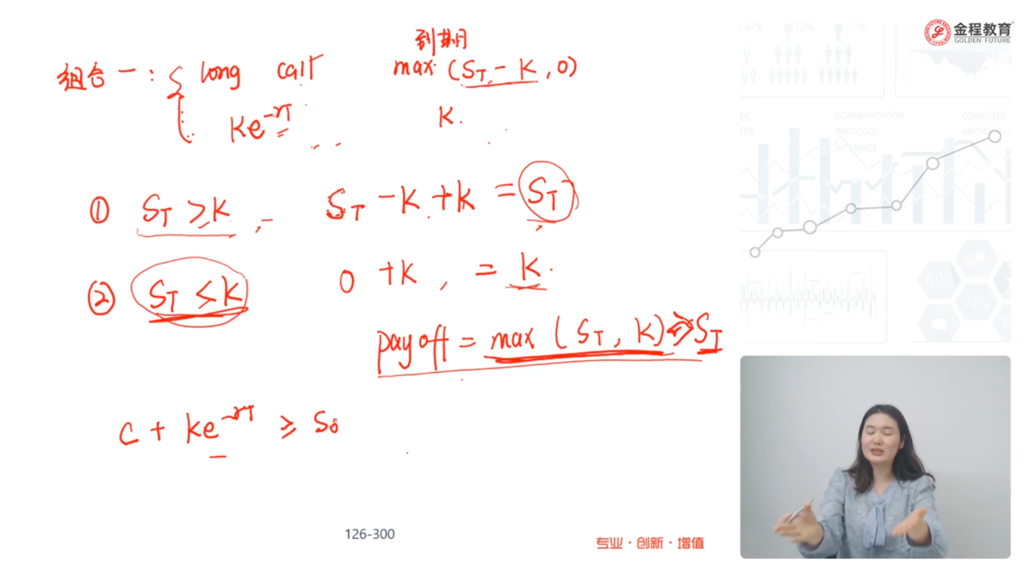 金程教育
GOLDEN FUTURE
到期
组合一: long call max (S_T - K, 0)
Ke^{-rT} K.
① S_T ≥ K, S_T - K + K = S_T
② S_T ≤ K 0 + K, = K.
payoff = max (S_T, K) ≥ S_T
c + Ke^{-rT} ≥ S_0
COMMUNICATION
PROTOCOL
INTERFACE
126-300
专业·创新·增值